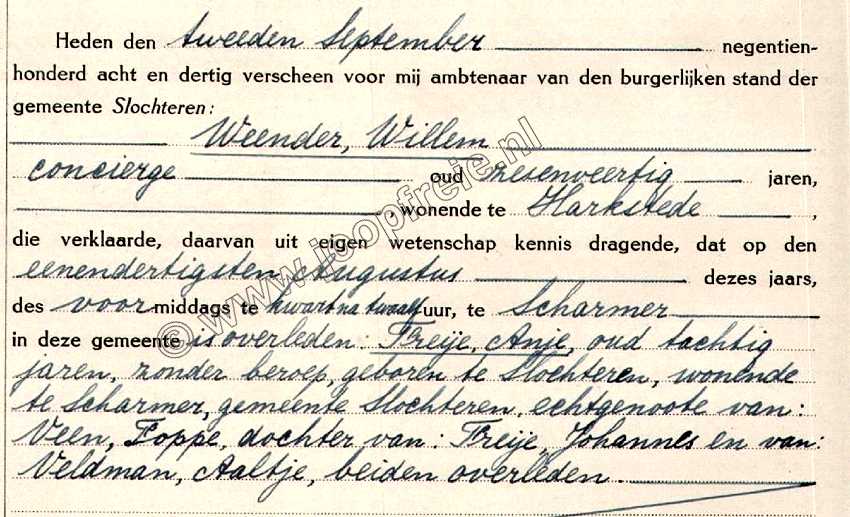 Heden den tweeden September negentien-
honderd acht en dertig verscheen voor mij ambtenaar van den burgerlijken stand der
gemeente Slochteren:
Weender, Willem
concierge oud zesenveertig jaren,
, wonende te Harkstede ,
die verklaarde, daarvan uit eigen wetenschap kennis dragende, dat op den
eenendertigsten Augustus dezes jaars,
des voormiddags te kwart na twaalf uur, te Scharmer
in deze gemeente is overleden: Freije, Anje, oud tachtig
jaren, zonder beroep, geboren te Slochteren, wonende
te Scharmer, gemeente Slochteren, echtgenoote van:
Veen, Poppe, dochter van: Freije, Johannes en van:
Veldman, Aaltje, beiden overleden.
© www.joopfreie.nl